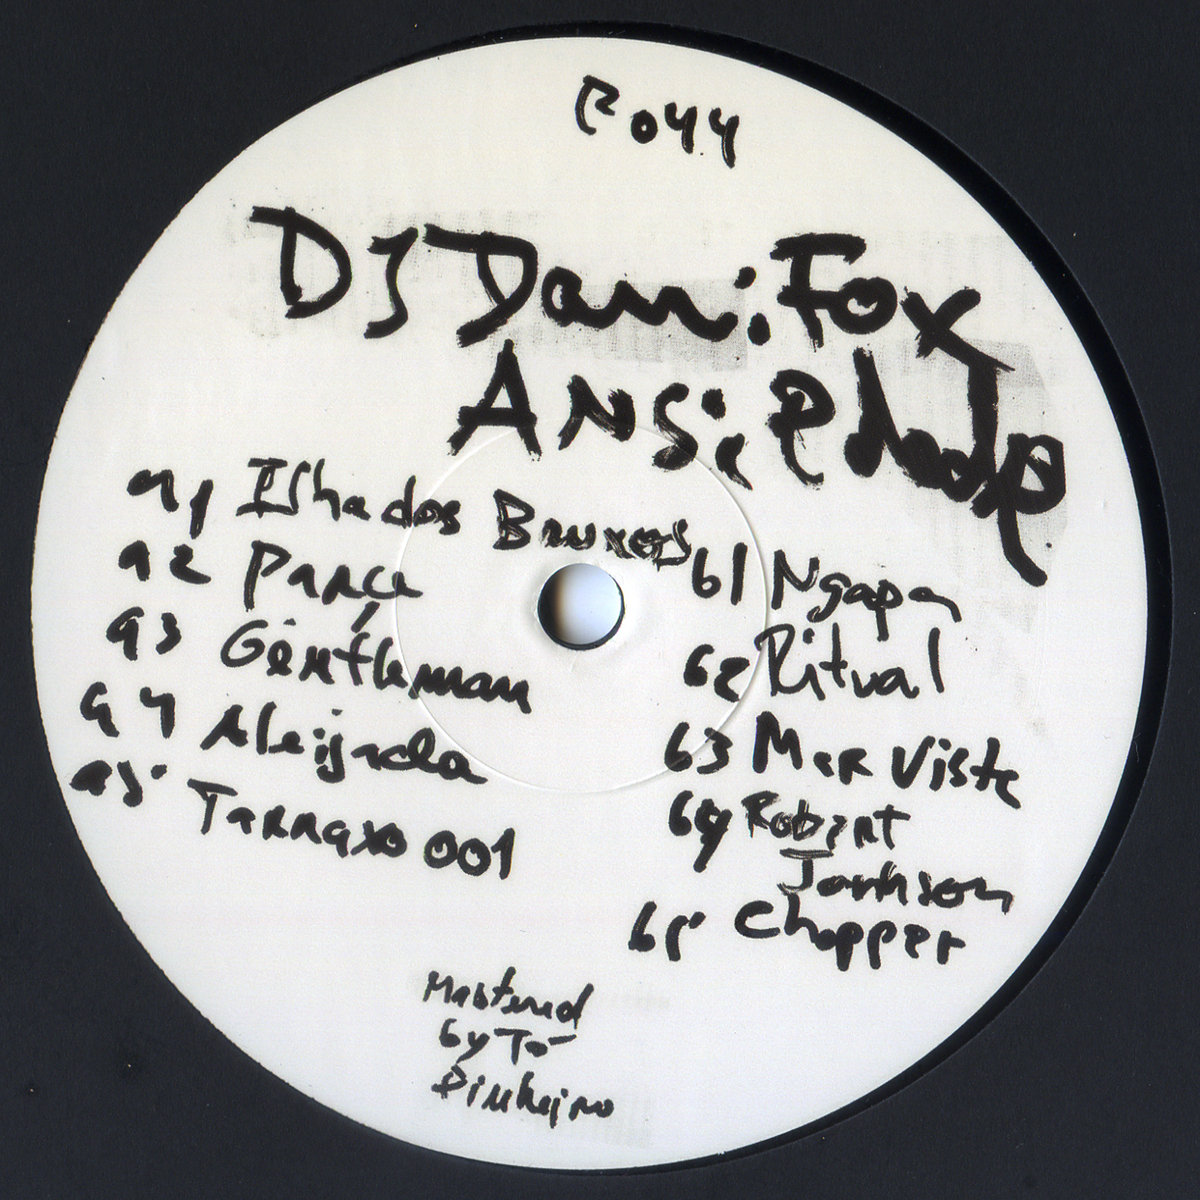 P044
DJ Danifox
Ansiedade
a1 Ilha dos Bruxos
a2 Parça
a3 Gentleman
a4 Aleijada
a5 Tarraxo 001
b1 Ngapa
b2 Ritual
b3 Mar Vista
b4 Robert
Jonhson
b5 Chopper
Mastered
by Tó
Pinheiro